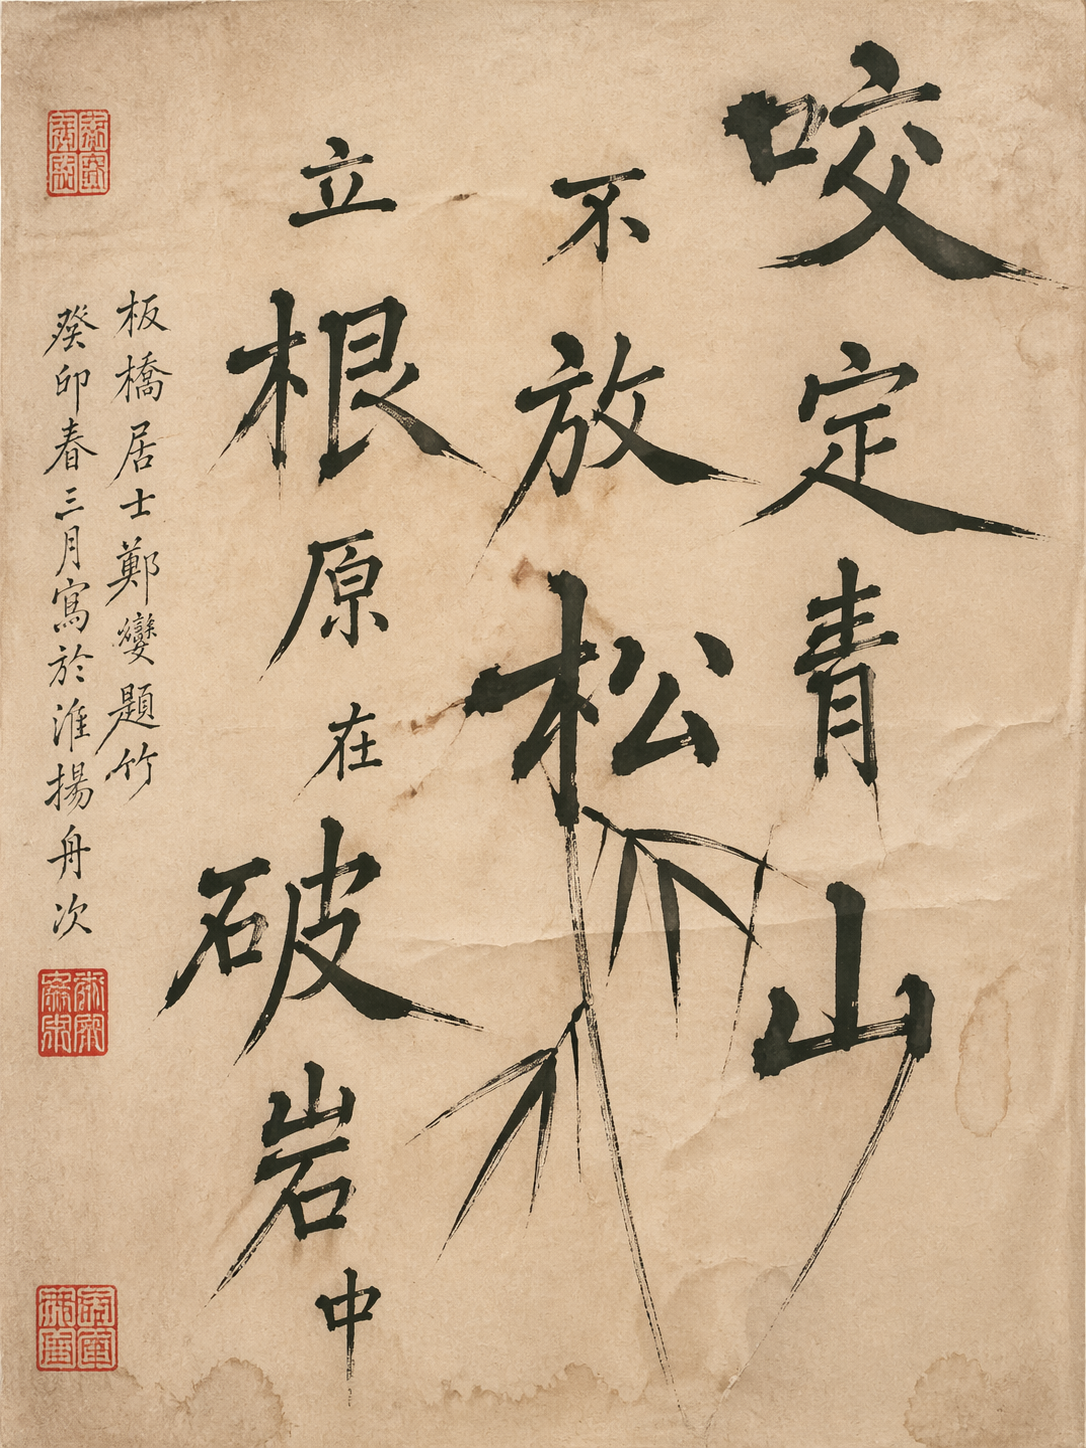 咬定青山
不放松
立根原在破岩中
板橋居士鄭燮題竹
癸卯春三月寫於淮揚舟次